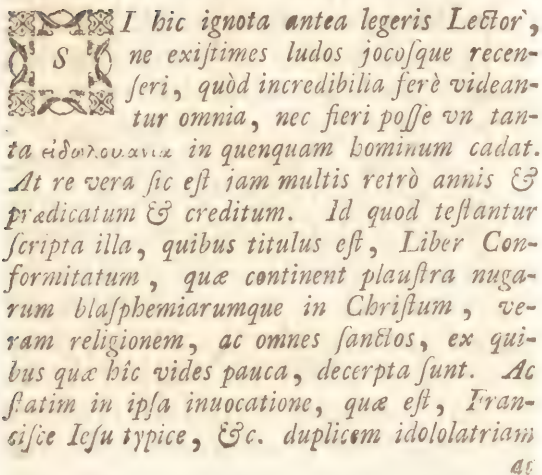 SI hic ignota antea legeris Lector,
ne existimes ludos jocosque recen-
seri, quòd incredibilia ferè videan-
tur omnia, nec fieri posse vn tan-
ta εἰδωλομανία in quenquam hominum cadat.
At re vera sic est jam multis retrò annis &
prædicatum & creditum. Id quod testantur
scripta illa, quibus titulus est, Liber Con-
formitatum, quæ continent plaustra nuga-
rum blasphemiarumque in Christum, ve-
ram religionem, ac omnes sanctos, ex qui-
bus quæ hîc vides pauca, decerpta sunt. Ac
statim in ipsa inuocatione, quæ est, Fran-
cisce Iesu typice, &c. duplicem idololatriam